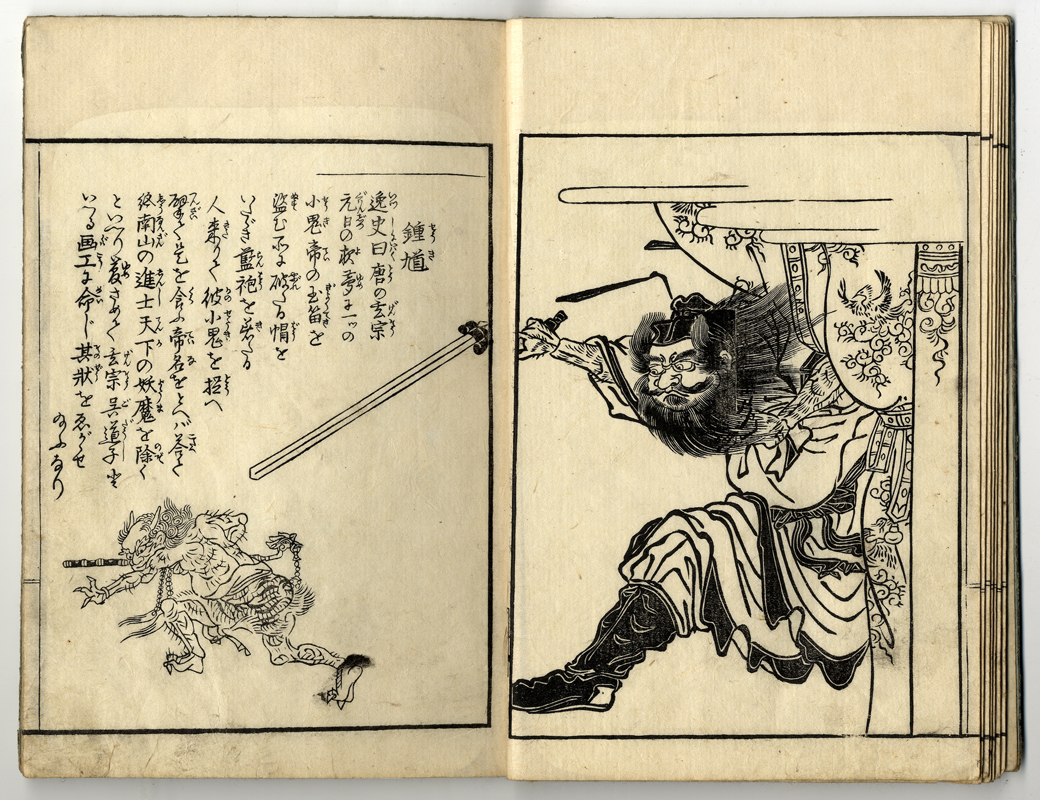 鍾馗
逸史曰唐の玄宗
元日の夜夢に一ッの
小鬼帝の玉笛を
盗む所に破たる帽を
いたゞき藍袍を着たる
人来りて彼小鬼を捉へ
擘て是を食ふ帝名をとへバ答て
終南山の進士天下の妖魔を除く
といへり夢さめて玄宗呉道子と
いへる画工に命じ其状をゑがゝせ
ふなり